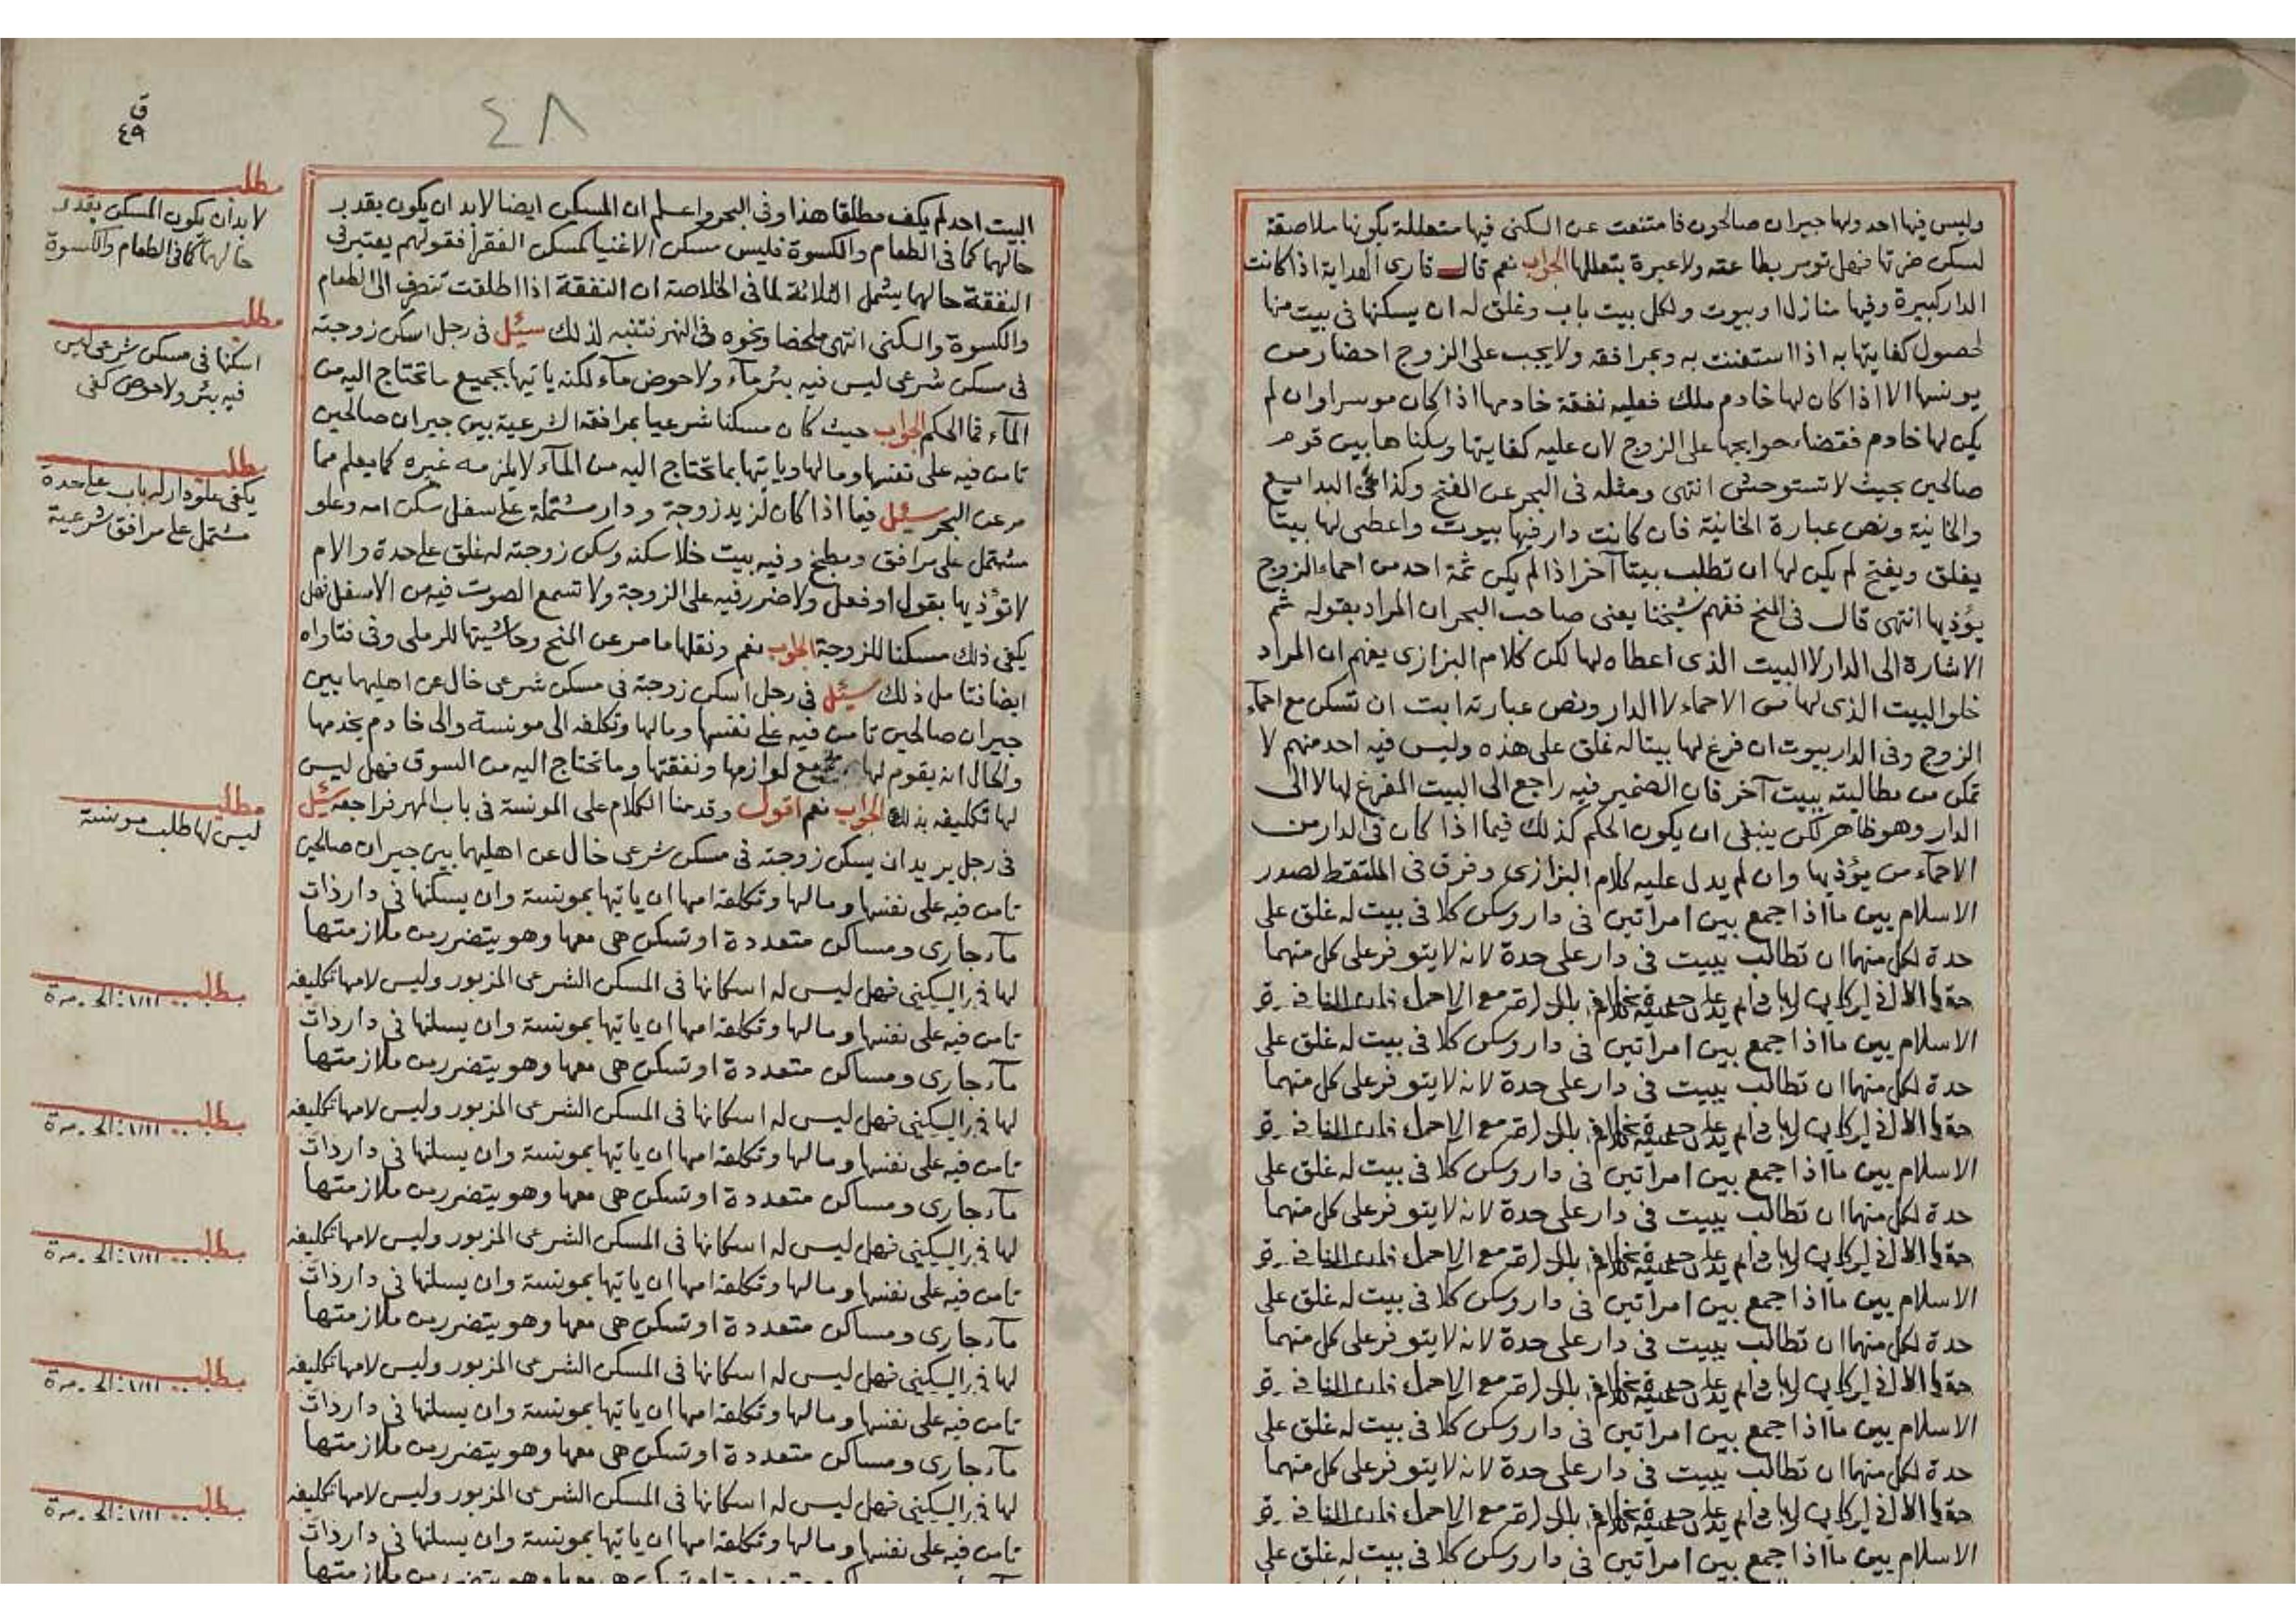 وليس فيها احد ولها جيران صالحون فامتنعت عن السكنى فيها متعللة بكونها ملاصقة
لسكن ضرتها فهل تومر بطاعته ولا عبرة بتعللها الجواب نعم قال قارى الهداية اذا كانت
الدار كبيرة وفيها منازل او بيوت ولكل بيت باب وغلق له ان يسكنها فى بيت منها
لحصول كفايتها به اذا استغنت به وبمرافقه ولا يجب على الزوج احضار من
يونسها الا اذا كان لها خادم ملك فعليه نفقة خادمها اذا كان موسرا وان لم
يكن لها خادم فقضاء حوايجها على الزوج لان عليه كفايتها وسكناها بين قوم
صالحين بحيث لا تستوحش انتهى ومثله فى البحر عن الفتح وكذا فى البدايع
والخانية ونص عبارة الخانية فان كانت دار فيها بيوت واعطى لها بيتا
يغلق ويفتح لم يكن لها ان تطلب بيتا آخر اذا لم يكن ثمة احد من احماء الزوج
يؤذيها انتهى قال فى المنح ففهم شيخنا يعنى صاحب البحر ان المراد بقوله ثم
الاشارة الى الدار لا البيت الذى اعطاه لها لكن كلام البزازى يفهم ان المراد
خلو البيت الذى لها من الاحماء لا الدار ونص عبارته ابت ان تسكن مع احماء
الزوج وفى الدار بيوت ان فرغ لها بيتا له غلق على هذه وليس فيه احد منهم لا
تمكن من مطالبته ببيت آخر فان الضمير فيه راجع الى البيت المفرغ لها لا الى
الدار وهو ظاهر لكن ينبغى ان يكون الحكم كذلك فيما اذا كان فى الدار من
الاحماء من يؤذيها وان لم يدل عليه كلام البزازى وفرق فى الملتقط لصدر
الاسلام بين ما اذا جمع بين امراتين فى دار وسكن كلا فى بيت له غلق على
حدة لكل منهما ان تطالب ببيت فى دار على حدة لانه لا يتوفر على كل منهما
الاسلام بين ما اذا جمع بين امراتين فى دار وسكن كلا فى بيت له غلق على
حدة لكل منهما ان تطالب ببيت فى دار على حدة لانه لا يتوفر على كل منهما
الاسلام بين ما اذا جمع بين امراتين فى دار وسكن كلا فى بيت له غلق على
حدة لكل منهما ان تطالب ببيت فى دار على حدة لانه لا يتوفر على كل منهما
الاسلام بين ما اذا جمع بين امراتين فى دار وسكن كلا فى بيت له غلق على
حدة لكل منهما ان تطالب ببيت فى دار على حدة لانه لا يتوفر على كل منهما
الاسلام بين ما اذا جمع بين امراتين فى دار وسكن كلا فى بيت له غلق على
حدة لكل منهما ان تطالب ببيت فى دار على حدة لانه لا يتوفر على كل منهما
الاسلام بين ما اذا جمع بين امراتين فى دار وسكن كلا فى بيت له غلق على
٤٨
ق
٤٩
البيت احد لم يكف مطلقا هذا وفى البحر واعلم ان المسكن ايضا لا بد ان يكون بقدر
حالهما كما فى الطعام والكسوة فليس مسكن الاغنيا كمسكن الفقرا فقولهم يعتبر فى
النفقة حالهما يشمل الثلاثة لما فى الخلاصة ان النفقة اذا اطلقت تنصرف الى الطعام
والكسوة والسكنى انتهى ملخصا ونحوه فى النهر فتنبه لذلك سئل فى رجل اسكن زوجته
فى مسكن شرعى ليس فيه بئر مآء ولا حوض مآء لكنه ياتيها بجميع ما تحتاج اليه من
المآء فما الحكم الجواب حيث كان مسكنا شرعيا بمرافقه الشرعية بين جيران صالحين
تامن فيه على نفسها ومالها وياتيها بما تحتاج اليه من المآء لا يلزمه غيره كما يعلم مما
مر عن البحر سئل فيما اذا كان لزيد زوجة ودار مشتملة على سفل سكن امه وعلو
مشتمل على مرافق ومطبخ وفيه بيت خلا سكنه وسكن زوجته له غلق على حدة والام
لا تؤذيها بقول او فعل ولا ضرر فيه على الزوجة ولا تسمع الصوت فيه من الاسفل فهل
يكفى ذلك مسكنا للزوجة الجواب نعم ونقلها ما مر عن المنح وحاشيتها للرملى وفى فتاواه
ايضا فتامل ذلك سئل فى رجل اسكن زوجته فى مسكن شرعى خال عن اهليهما بين
جيران صالحين تامن فيه على نفسها ومالها وتكلفه الى مونسة والى خادم يخدمها
والحال انه يقوم لها بجميع لوازمها ونفقتها وما تحتاج اليه من السوق فهل ليس
لها تكليفه بذلك الجواب نعم اقول وقدمنا الكلام على المونسة فى باب المهر فراجعه سئل
فى رجل يريد ان يسكن زوجته فى مسكن شرعى خال عن اهليهما بين جيران صالحين
تامن فيه على نفسها ومالها وتكلفه امها ان ياتيها بمونسة وان يسكنها فى دار ذات
مآء جارى ومساكن متعددة او تسكن هى معها وهو يتضرر من ملازمتها
لها فى السكنى فهل ليس له اسكانها فى المسكن الشرعى المزبور وليس لامها تكليفه
تامن فيه على نفسها ومالها وتكلفه امها ان ياتيها بمونسة وان يسكنها فى دار ذات
مآء جارى ومساكن متعددة او تسكن هى معها وهو يتضرر من ملازمتها
لها فى السكنى فهل ليس له اسكانها فى المسكن الشرعى المزبور وليس لامها تكليفه
تامن فيه على نفسها ومالها وتكلفه امها ان ياتيها بمونسة وان يسكنها فى دار ذات
مآء جارى ومساكن متعددة او تسكن هى معها وهو يتضرر من ملازمتها
لها فى السكنى فهل ليس له اسكانها فى المسكن الشرعى المزبور وليس لامها تكليفه
تامن فيه على نفسها ومالها وتكلفه امها ان ياتيها بمونسة وان يسكنها فى دار ذات
مآء جارى ومساكن متعددة او تسكن هى معها وهو يتضرر من ملازمتها
لها فى السكنى فهل ليس له اسكانها فى المسكن الشرعى المزبور وليس لامها تكليفه
تامن فيه على نفسها ومالها وتكلفه امها ان ياتيها بمونسة وان يسكنها فى دار ذات
مآء جارى ومساكن متعددة او تسكن هى معها وهو يتضرر من ملازمتها
لها فى السكنى فهل ليس له اسكانها فى المسكن الشرعى المزبور وليس لامها تكليفه
تامن فيه على نفسها ومالها وتكلفه امها ان ياتيها بمونسة وان يسكنها فى دار ذات
مطلب
لا بد أن يكون المسكن بقدر
حالهما كما فى الطعام والكسوة
مطلب
اسكنها فى مسكن شرعى ليس
فيه بئر ولا حوض كفى
مطلب
يكفى علو دار له باب على حدة
مشتمل على مرافق شرعية
مطلب
ليس لها طلب مونسة
مطلب
مطلب
مطلب
مطلب
مطلب